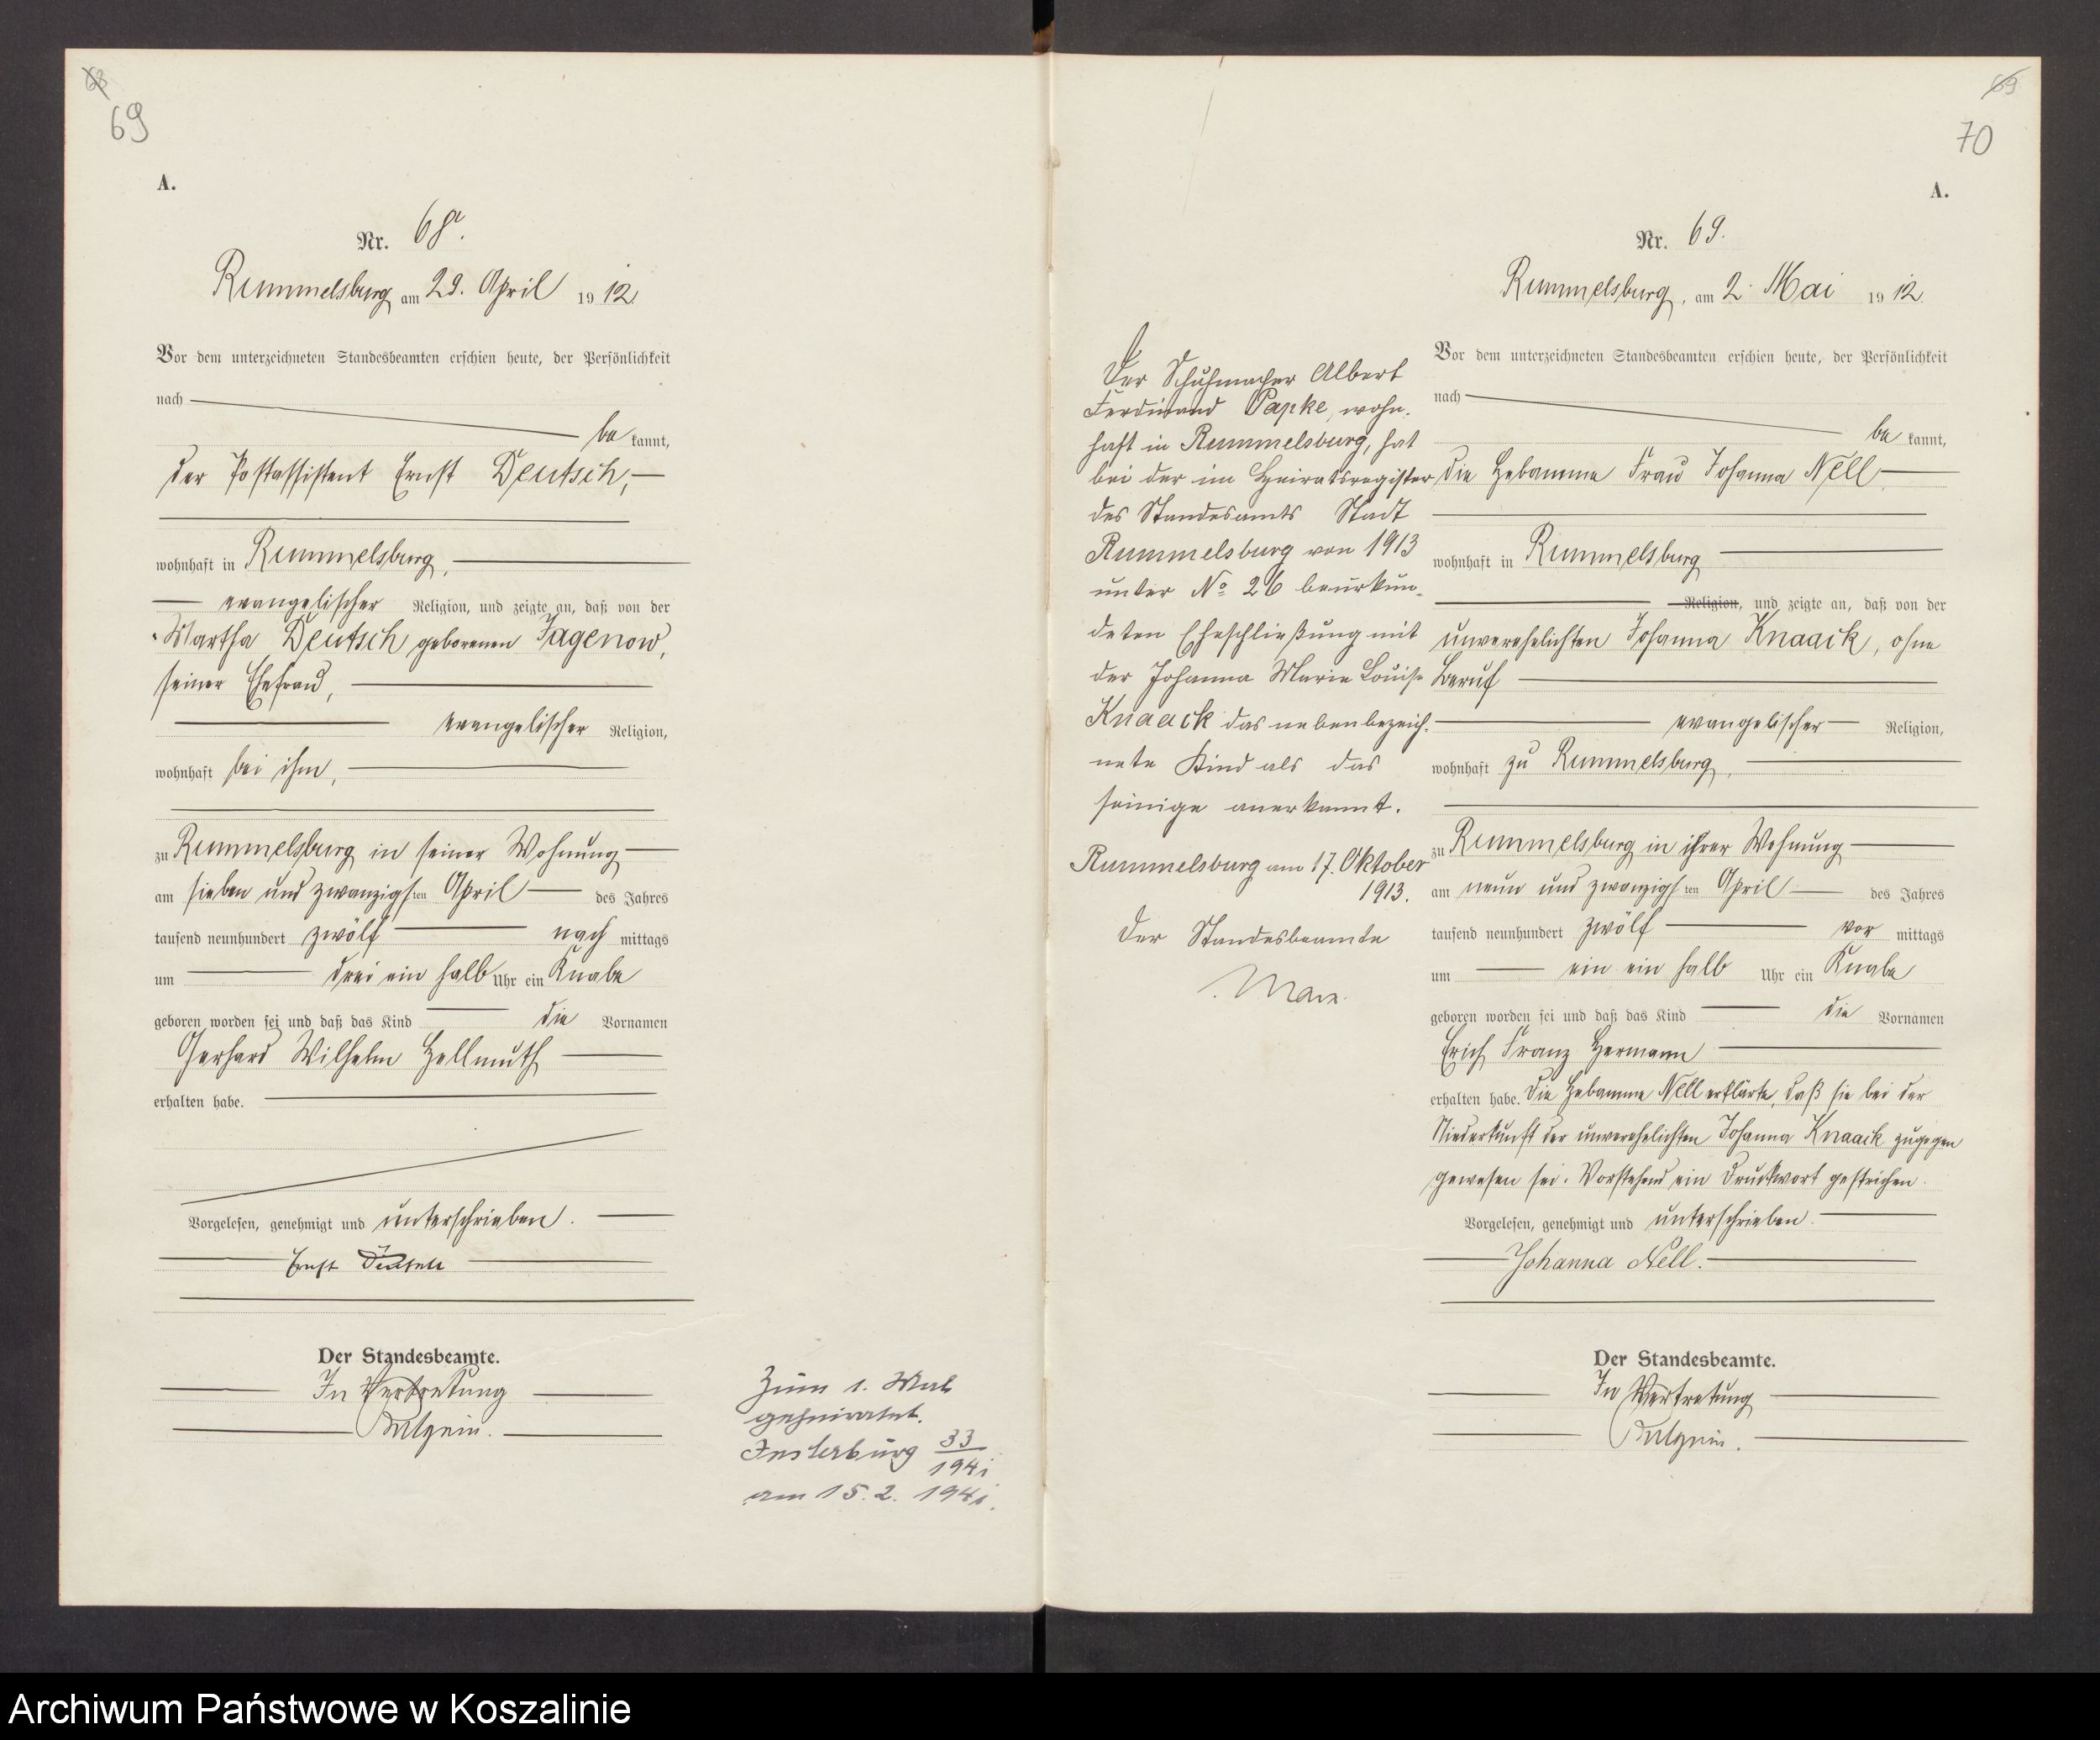 68
69
A.
Nr. 68.
Rummelsburg am 29. April 1912
Vor dem unterzeichneten Standesbeamten erschien heute, der Persönlichkeit
nach
bekannt,
der Postassistent Ernst Deutsch,
wohnhaft in Rummelsburg,
evangelischer Religion, und zeigte an, daß von der
Martha Deutsch geborenen Jagenow,
seiner Ehefrau,
evangelischer Religion,
wohnhaft bei ihm,
zu Rummelsburg in seiner Wohnung
am sieben und zwanzigsten April des Jahres
tausend neunhundert zwölf nachmittags
um drei ein halb Uhr ein Knabe
geboren worden sei und daß das Kind die Vornamen
Gerhard Wilhelm Hellmuth
erhalten habe.
Vorgelesen, genehmigt und unterschrieben.
Ernst Deutsch
Der Standesbeamte.
In Vertretung
Zum 1. Mal
geheiratet.
Insterburg 33
1941
am 15. 2. 1941.
69
70
A.
Nr. 69.
Rummelsburg, am 2. Mai 1912.
Vor dem unterzeichneten Standesbeamten erschien heute, der Persönlichkeit
nach
bekannt,
die Hebamme Frau Johanna Nell
wohnhaft in Rummelsburg
Religion, und zeigte an, daß von der
unverehelichten Johanna Knaack, ohne
Beruf
evangelischer Religion,
wohnhaft zu Rummelsburg,
zu Rummelsburg in ihrer Wohnung
am neun und zwanzigsten April des Jahres
tausend neunhundert zwölf vormittags
um ein ein halb Uhr ein Knabe
geboren worden sei und daß das Kind die Vornamen
Erich Franz Hermann
erhalten habe. Die Hebamme Nell erklärte, daß sie bei der
Niederkunft der unverehelichten Johanna Knaack zugegen
gewesen sei. Vorstehend ein Druckwort gestrichen.
Vorgelesen, genehmigt und unterschrieben.
Johanna Nell.
Der Standesbeamte.
In Vertretung
Der Schuhmacher Albert
Ferdinand Papke, wohn-
haft in Rummelsburg, hat
bei der im Heiratsregister
des Standesamts Stadt
Rummelsburg von 1913
unter No 26 beurkun-
deten Eheschließung mit
der Johanna Marie Louise
Knaack das nebenbezeich-
nete Kind als das
seinige anerkannt.
Rummelsburg am 17. Oktober
1913.
Der Standesbeamte
Archiwum Państwowe w Koszalinie